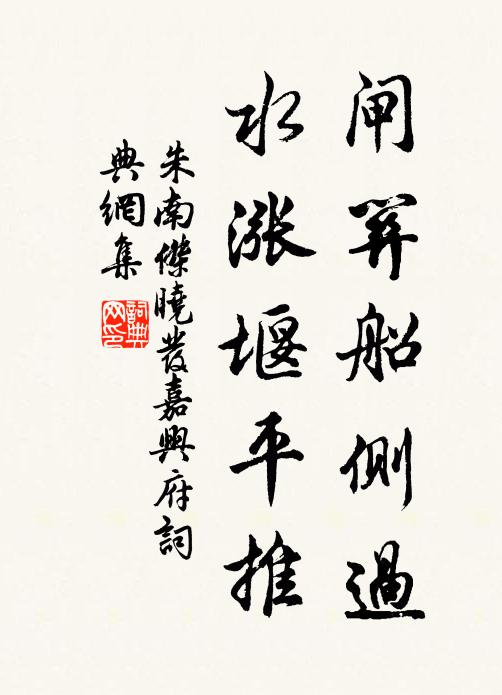 闸算船側過
水漲堰平推
朱南傑曉發嘉興府詞
典網集
詞典網印